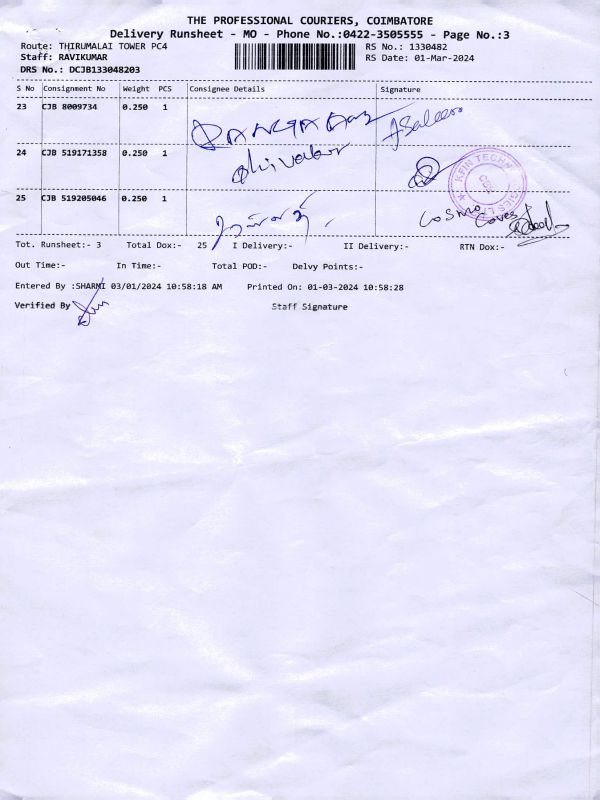 THE PROFESSIONAL COURIERS, COIMBATORE
Delivery Runsheet - MO - Phone No.:0422-3505555 - Page No.:3
Route: THIRUMALAI TOWER PC4
RS No.: 1330482
Staff: RAVIKUMAR
RS Date: 01-Mar-2024
DRS No.: DCJB133048203
S No Consignment No Weight PCS Consignee Details Signature
23 CJB 8009734 0.250 1
24 CJB 519171358 0.250 1
KFIN TECH
25 CJB 519205046 0.250 1
Cosmo
Tot. Runsheet:- 3 Total Dox:- 25 I Delivery:- II Delivery:- RTN Dox:-
Out Time:- In Time:- Total POD:- Delvy Points:-
Entered By :SHARMI 03/01/2024 10:58:18 AM Printed On: 01-03-2024 10:58:28
Verified By Staff Signature